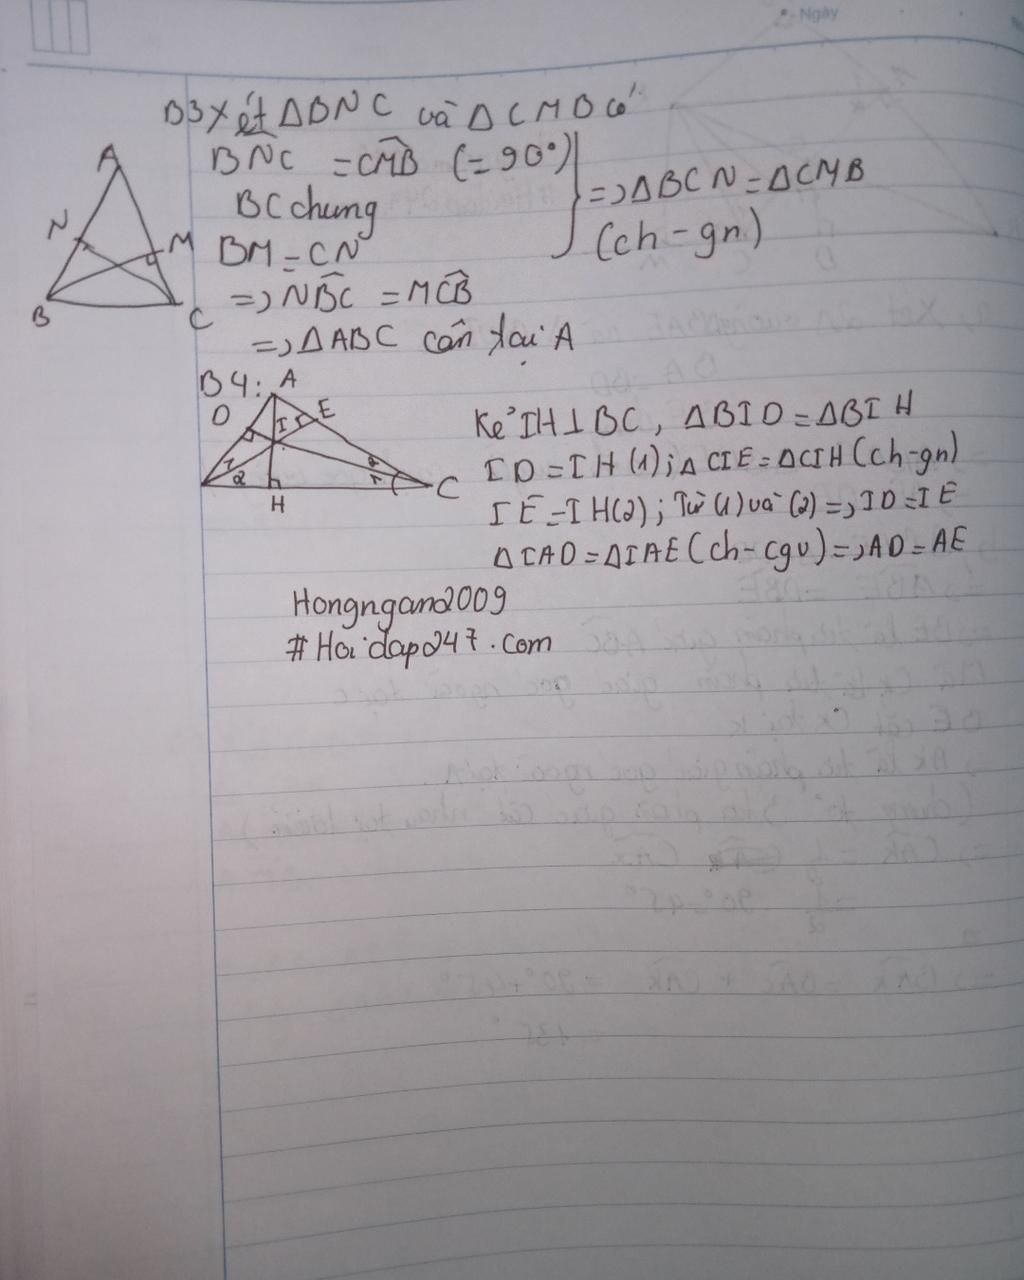 Ngày
B3 Xét ΔBNC và ΔCMB có
BNC = \widehat{CMB} (= 90°)
BC chung
BM = CN
=> ΔBCN = ΔCMB
(ch - gn)
=> N\widehat{B}C = M\widehat{C}B
=> ΔABC cân tại A
A
N
M
B
C
B4:
A
D
I
E
1
2
2
1
H
C
Kẻ IH ⊥ BC, ΔBID = ΔBIH
ID = IH (1); Δ CIE = ΔCIH (ch-gn)
IE = IH(2); Từ (1) và (2) => ID = IE
ΔIAD = ΔIAE (ch - cgv) => AD = AE
Hongngan2009
#Hoidap247.com